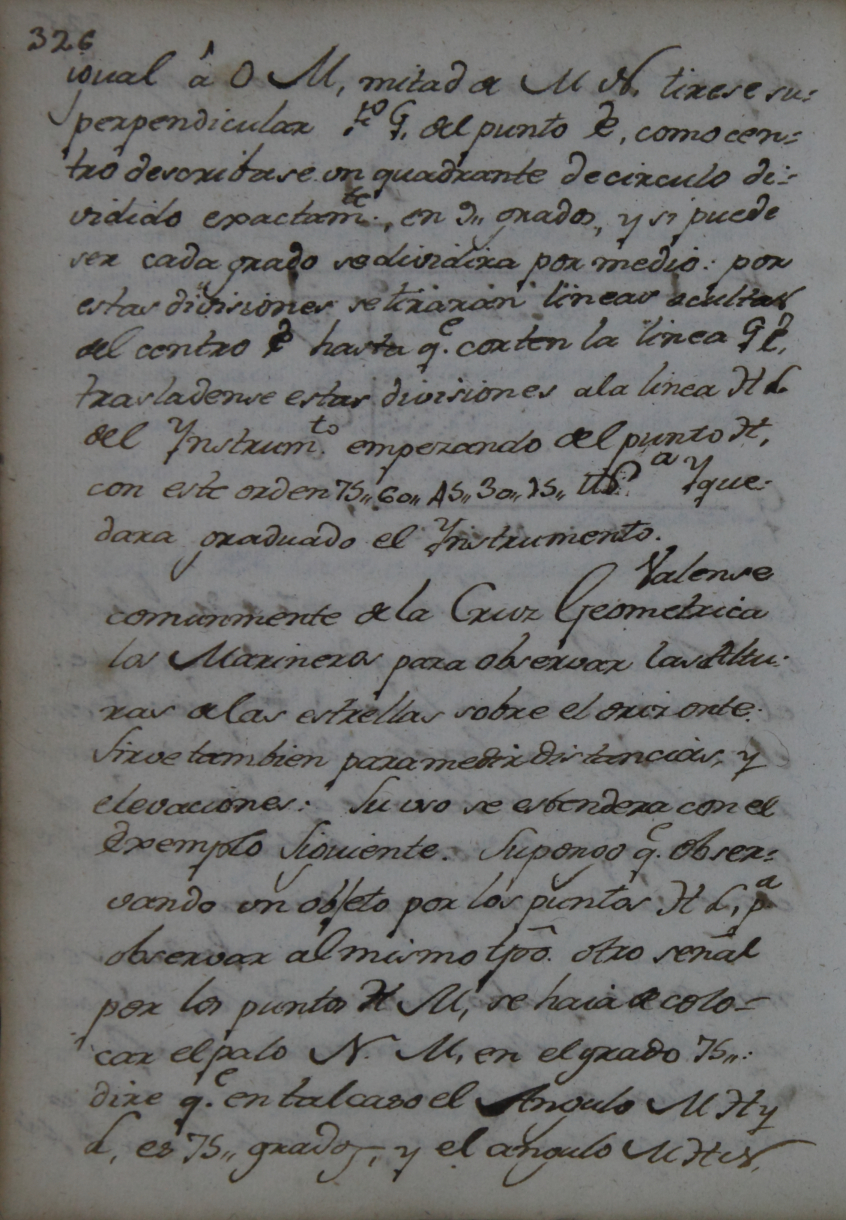 326
igual á O M, mitad de M N. tirese su=
perpendicular G. del punto P, como cen=
tro describase un quadrante de circulo di=
vidido exactam.te, en 9,, grados, y si puede
ser cada grado se dividira por medio: por
estas divisiones se tiraràn lineas ocultas
del centro P hasta q.e corten la linea G P,
trasladense estas divisiones ala linea H L
del Ynstrum.to empezando del punto H,
con este orden 75,, 60,, 45,, 30,, 15,, Y que=
dara graduado el Ynstrumento.
Valense
comunmente de la Cruz Geometrica
los Marineros para observar las Altu=
ras de las estrellas sobre el orizonte.
Sirve tambien para medir distancias, y
elevaciones: Su uso se estendera con el
Exemplo Siguiente. Supongo q.e obser=
vando un objeto por los puntos H L, p.a
observar al mismo tpō. otro señal
por los puntos H M, se haia de colo=
car el palo N. M, en el grado 75,,:
dire q.e en tal caso el Angulo M H y
L, es 75,, grados, y el angulo M H N,